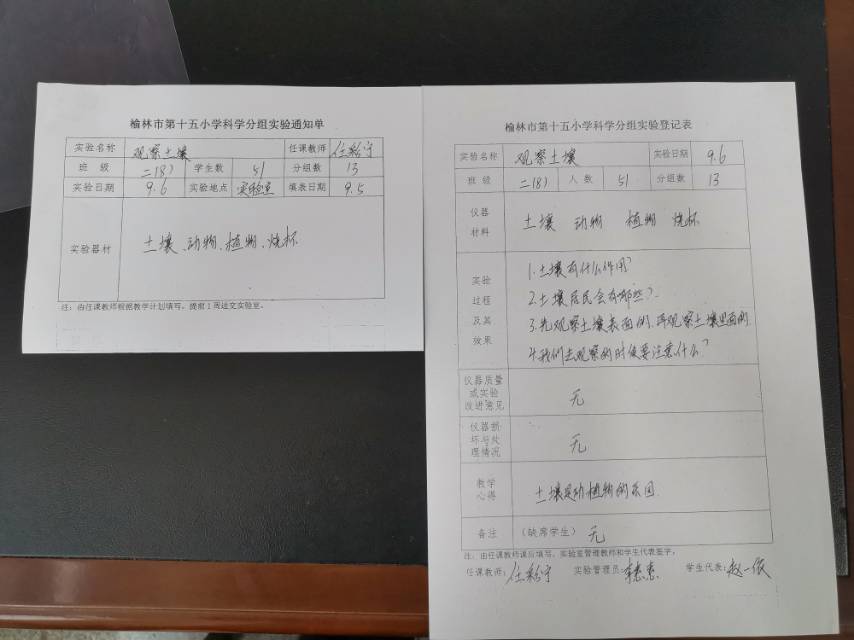 榆林市第十五小学科学分组实验通知单
实验名称 观察土壤 任课教师
班 级 二(8) 学生数 51 分组数 13
实验日期 9.6 实验地点 实验室 填表日期 9.5
实验器材 土壤、动物、植物、烧杯
注:由任课教师根据教学计划填写,提前1周送交实验室。
榆林市第十五小学科学分组实验登记表
实验名称 观察土壤 实验日期 9.6
班 级 二(8) 人 数 51 分组数 13
仪器
材料
土壤 动物 植物 烧杯
实验
过程
及其
效果
1.土壤有什么作用?
2.土壤居民会有哪些?
3.先观察土壤表面的,再观察土壤里面的
4.我们去观察的时候要注意什么?
仪器质量
或实验
改进意见
无
仪器损
坏与处
理情况
无
教学
心得
土壤是动植物的乐园
备注 (缺席学生) 无
注:由任课教师课后填写,实验室管理教师和学生代表签字。
任课教师: 实验管理员: 学生代表:赵一依